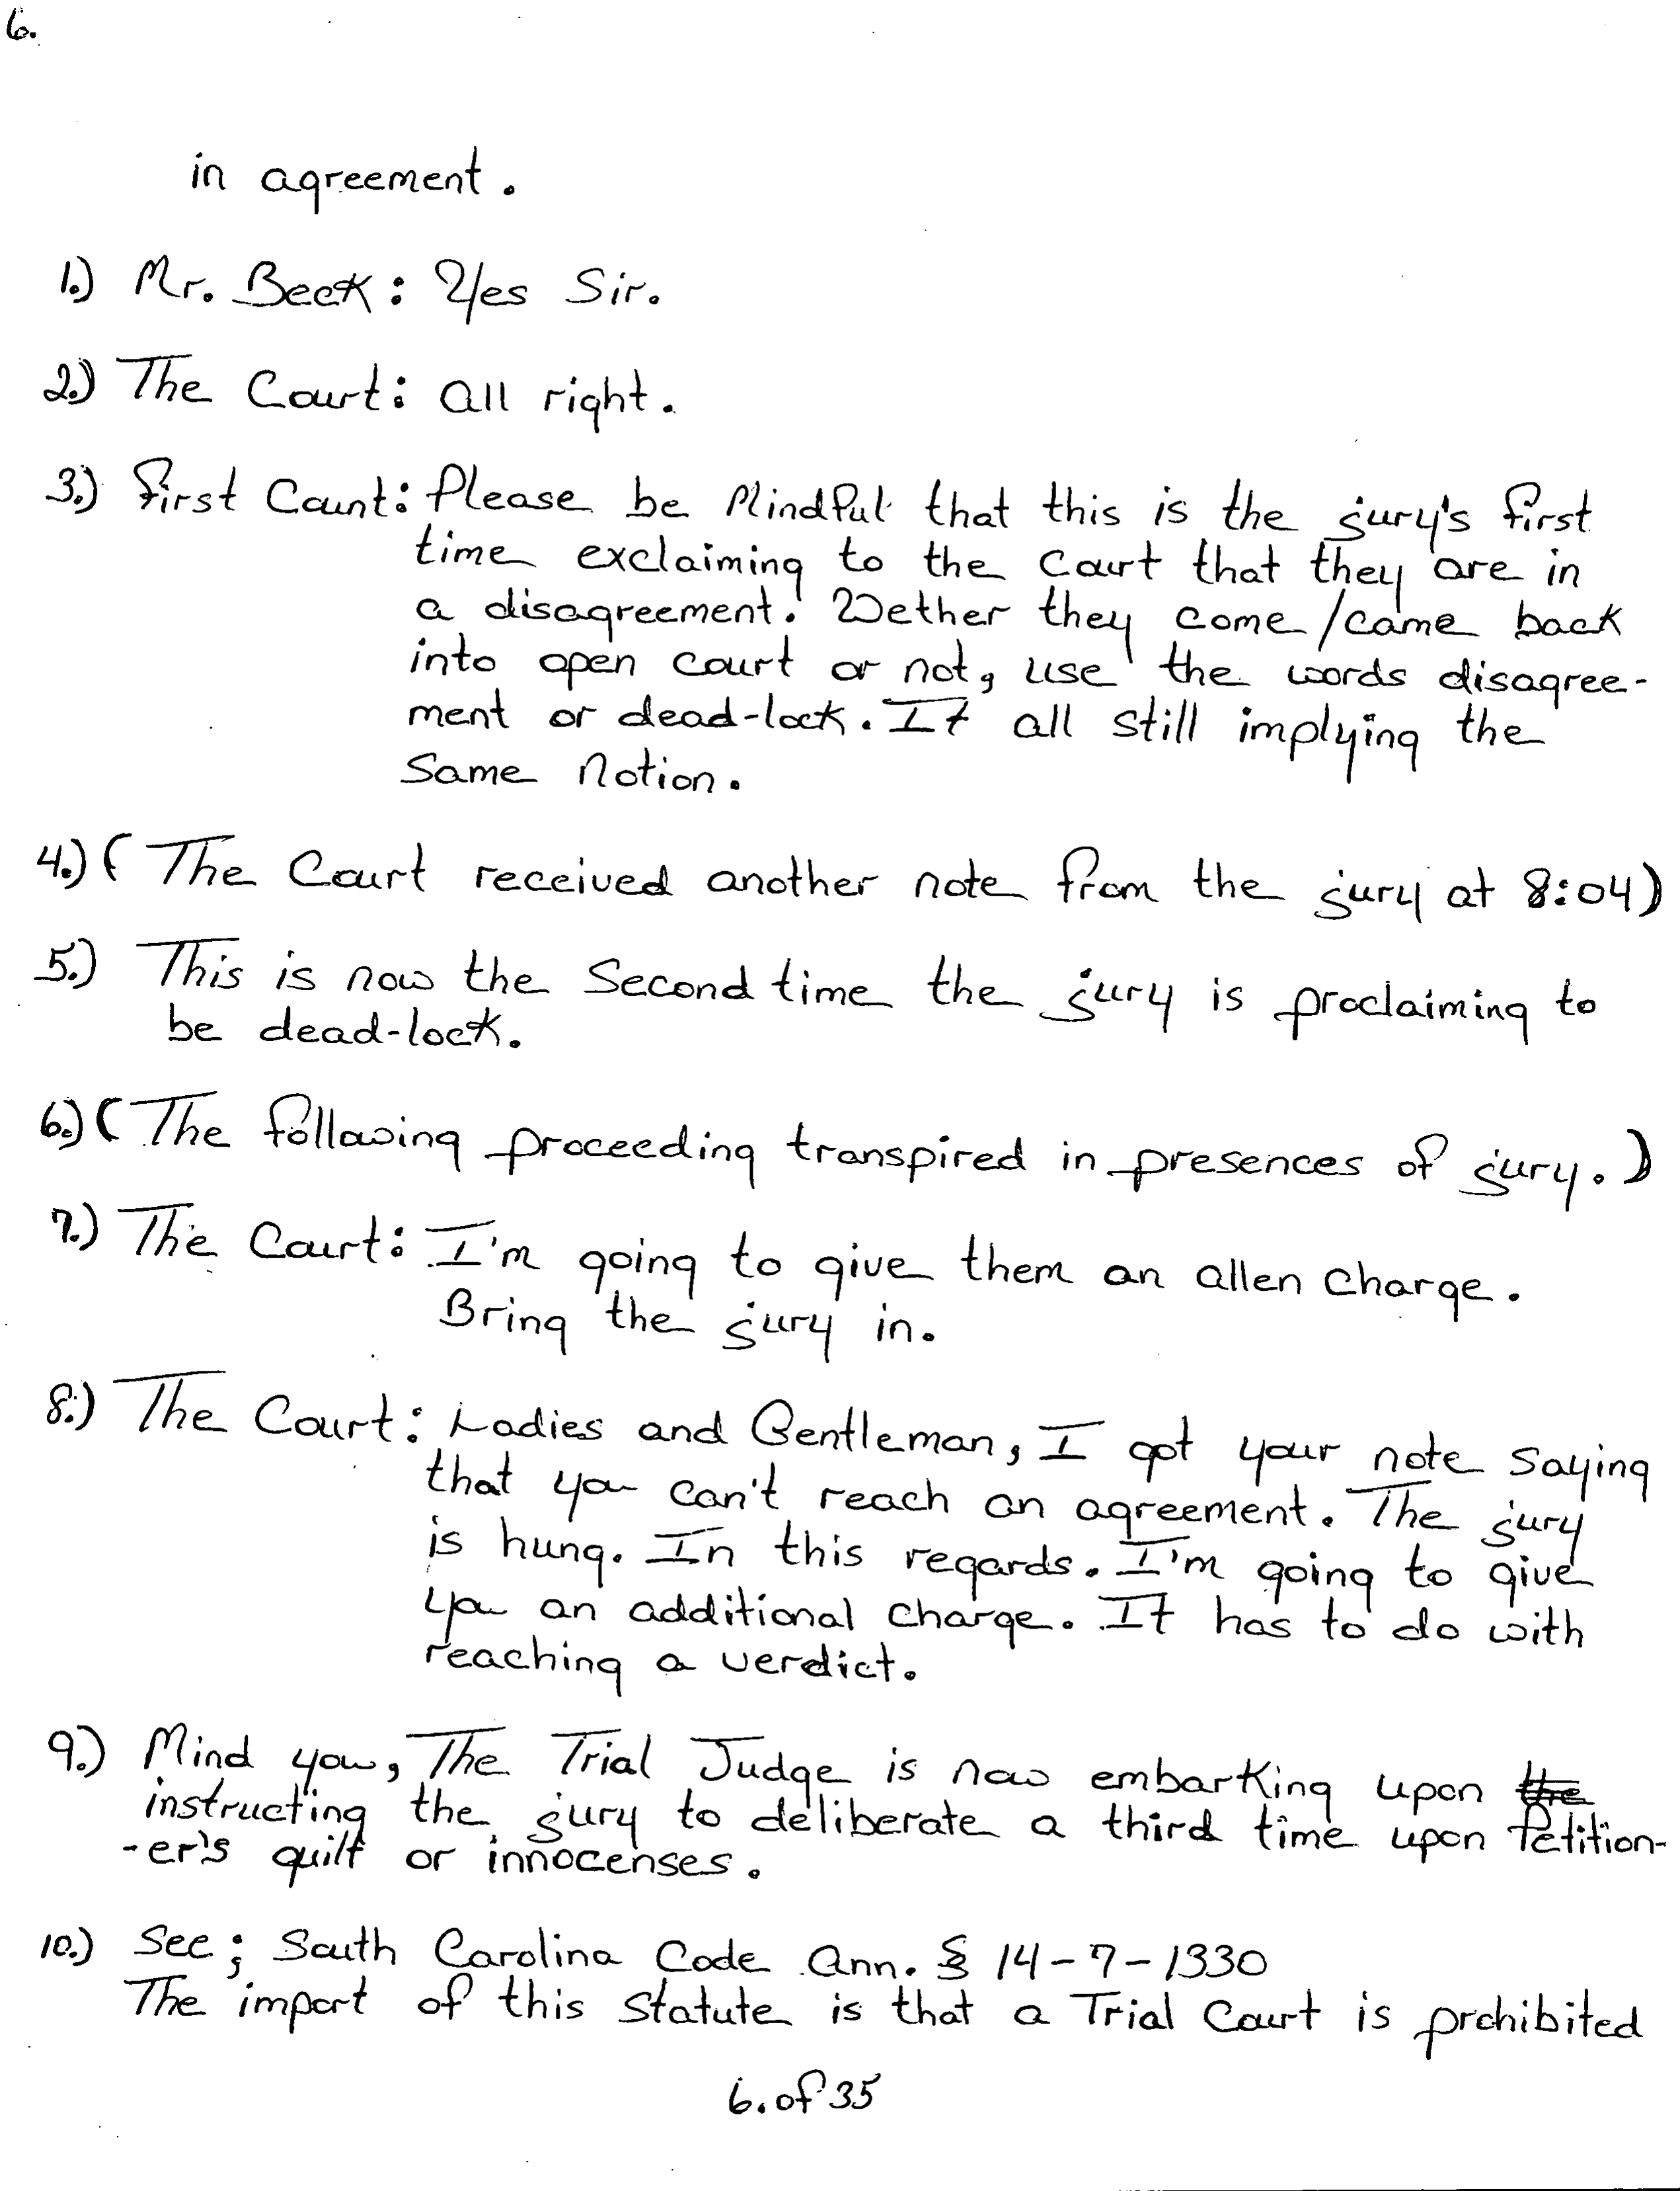 6.
in agreement.
1.) Mr. Beck: Yes Sir.
2.) The Court: All right.
3.) First Count: Please be Mindful that this is the jury's first
time exclaiming to the Court that they are in
a disagreement. Wether they come/came back
into open court or not, use the words disagree-
ment or dead-lock. It all still implying the
Same Notion.
4.) (The Court received another note from the jury at 8:04)
5.) This is now the Second time the jury is proclaiming to
be dead-lock.
6.) (The following proceeding transpired in presences of jury.)
7.) The Court: I'm going to give them an allen charge.
Bring the jury in.
8.) The Court: Ladies and Gentleman, I got your note saying
that you can't reach an agreement. The jury
is hung. In this regards. I'm going to give
you an additional charge. It has to do with
reaching a verdict.
9.) Mind you, The Trial Judge is now embarking upon the
instructing the jury to deliberate a third time upon Petition-
-er's guilt or innocenses.
10.) See; South Carolina Code Ann. § 14-7-1330
The import of this Statute is that a Trial Court is prohibited
6. of 35